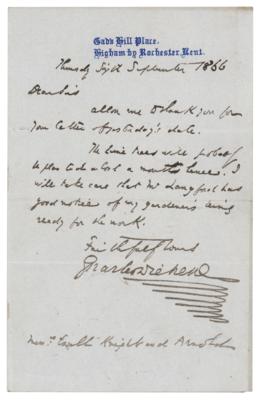 Gad's Hill Place,
Higham by Rochester, Kent.
Thursday Sixth September 1866
Dear Sirs
allow me to thank you for
your letter of yesterday's date.
The lime trees will probably
be planted about a month hence. I
will take care that Mr Langford has
good notice of my gardener's being
ready for the work.
Faithfully Yours
Charles Dickens
Mess.rs Knight and